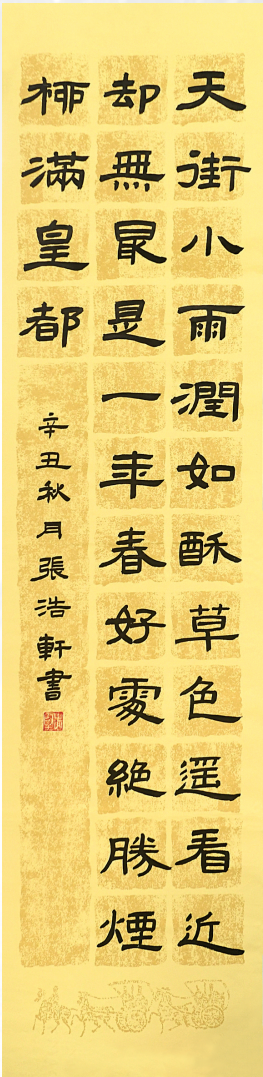 天街小雨潤如酥草色遥看近
却無最是一年春好處絕勝煙
柳滿皇都
辛丑秋月張浩軒書